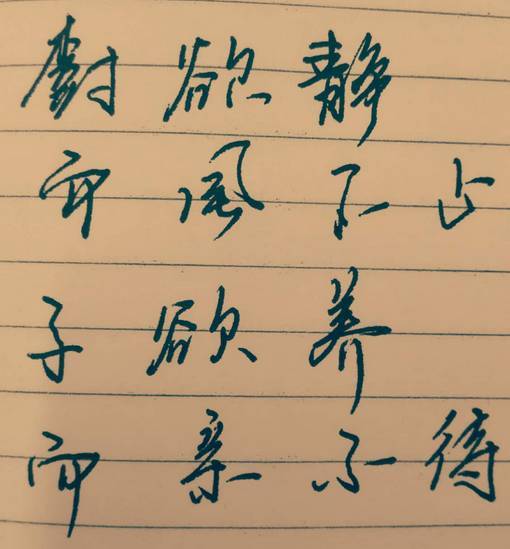 樹欲静
而風不止
子欲养
而亲不待